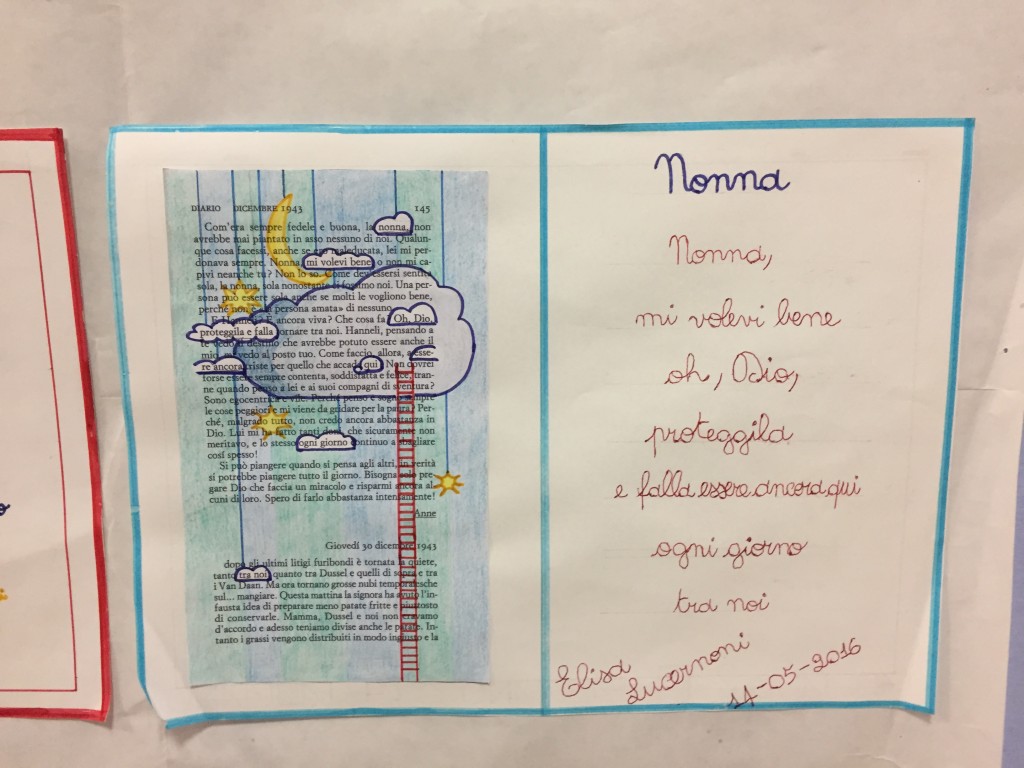 DIARIO DICEMBRE 1943 145
Com'era sempre fedele e buona, la nonna, non
avrebbe mai piantato in asso nessuno di noi. Qualun-
que cosa facessi, anche se ero maleducata, lei mi per-
donava sempre. Nonna, mi volevi bene o non mi ca-
pivi neanche tu? Non lo so. Come dev'essersi sentita
sola, la nonna, sola nonostante ci fossimo noi. Una per-
sona può essere sola anche se molti le vogliono bene,
perché non è «la persona amata» di nessuno.
E Hanneli? È ancora viva? Che cosa fa? Oh, Dio,
proteggila e falla tornare tra noi. Hanneli, pensando a
te vedo il destino che avrebbe potuto essere anche il
mio, mi vedo al posto tuo. Come faccio, allora, a esse-
re ancora triste per quello che accade qui? Non dovrei
forse essere sempre contenta, soddisfatta e felice, tran-
ne quando penso a lei e ai suoi compagni di sventura?
Sono egocentrica e vile. Perché penso e sogno sempre
le cose peggiori e mi viene da gridare per la paura? Per-
ché, malgrado tutto, non credo ancora abbastanza in
Dio. Lui mi ha fatto tanti doni, che sicuramente non
meritavo, e lo stesso ogni giorno continuo a sbagliare
così spesso!
Si può piangere quando si pensa agli altri, in verità
si potrebbe piangere tutto il giorno. Bisogna solo pre-
gare Dio che faccia un miracolo e risparmi ancora al-
cuni di loro. Spero di farlo abbastanza intensamente!
Anne
Giovedì 30 dicembre 1943
dopo gli ultimi litigi furibondi è tornata la quiete,
tanto tra noi, quanto tra Dussel e quelli di sopra e tra
i Van Daan. Ma ora tornano grosse nubi temporalesche
sul... mangiare. Questa mattina la signora ha avuto l'in-
fausta idea di preparare meno patate fritte e piuttosto
di conservarle. Mamma, Dussel e noi non eravamo
d'accordo e adesso teniamo divise anche le patate. In-
tanto i grassi vengono distribuiti in modo ingiusto e la
Nonna
Nonna,
mi volevi bene
oh, Dio,
proteggila
e falla essere ancora qui
ogni giorno
tra noi
Elisa
Lucernoni
14-05-2016